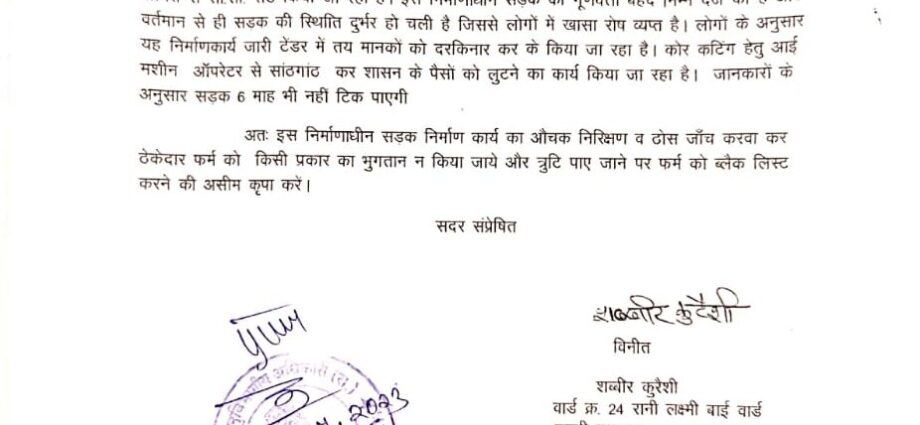 वर्तमान से ही सड़क की स्थिाति दुर्भर हो चली है जिससे लोगों में खासा रोष व्यप्त है। लोगों के अनुसार
यह निर्माणकार्य जारी टेंडर में तय मानकों को दरकिनार कर के किया जा रहा है। कोर कटिंग हेतु आई
मशीन ऑपरेटर से सांठगांठ कर शासन के पैसों को लुटने का कार्य किया जा रहा है। जानकारों के
अनुसार सड़क 6 माह भी नहीं टिक पाएगी
अतः इस निर्माणाधीन सड़क निर्माण कार्य का औचक निरिक्षण व ठोस जाँच करवा कर
ठेकेदार फर्म को किसी प्रकार का भुगतान न किया जाये और त्रुटि पाए जाने पर फर्म को ब्लैक लिस्ट
करने की असीम कृपा करें।
सदर संप्रेषित
शब्बीर कुरैशी
विनीत
शब्वीर कुरैशी
वार्ड क्र. 24 रानी लक्ष्मी बाई वार्ड
अधिकारी
2023